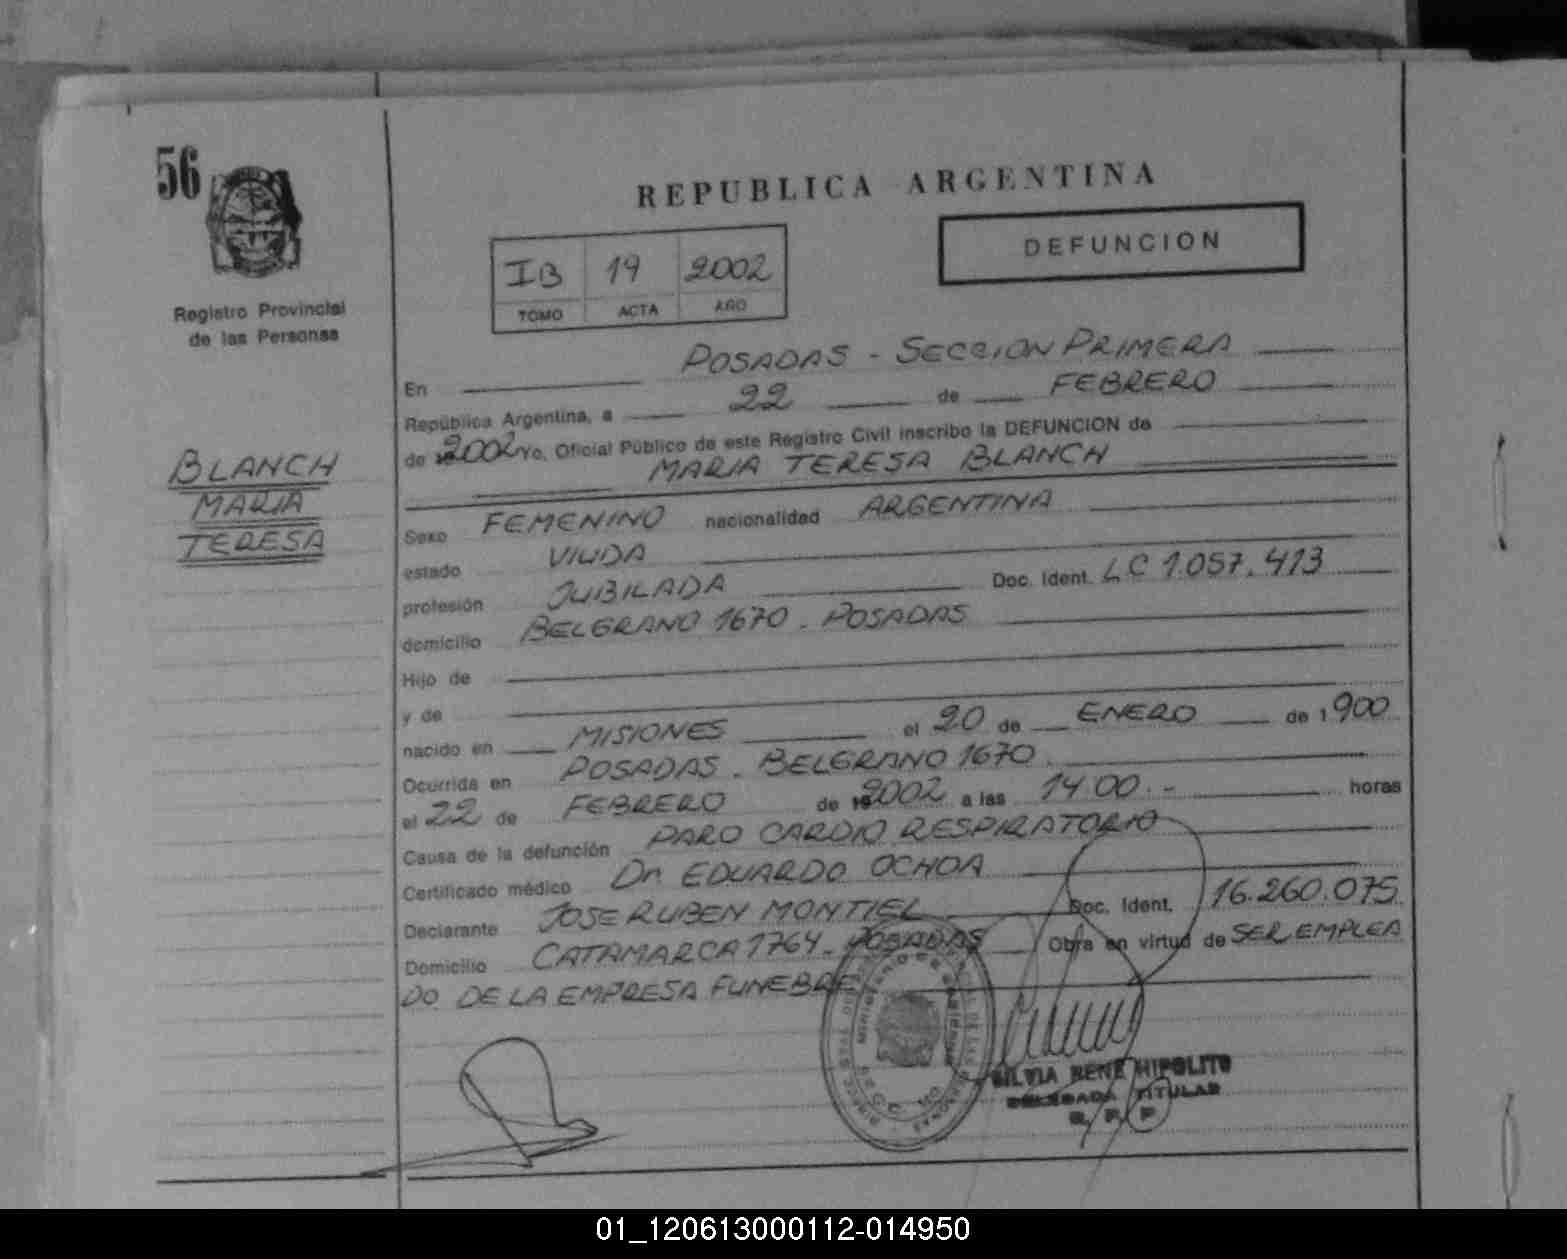 56
REPUBLICA ARGENTINA
DEFUNCION
IB 19 2002
TOMO ACTA AÑO
Registro Provincial
de las Personas
BLANCH
MARIA
TERESA
En POSADAS - SECCION PRIMERA
República Argentina, a 22 de FEBRERO
de 2002 Yo, Oficial Público de este Registro Civil inscribo la DEFUNCION de
MARIA TERESA BLANCH
Sexo FEMENINO nacionalidad ARGENTINA
estado VIUDA
profesión JUBILADA Doc. Ident. LC 1.057.413
domicilio BELGRANO 1670 - POSADAS
Hijo de
y de
nacido en MISIONES el 20 de ENERO de 1900
Ocurrida en POSADAS - BELGRANO 1670
el 22 de FEBRERO de 2002 a las 14 00 horas
Causa de la defunción PARO CARDIO RESPIRATORIO
Certificado médico Dr. EDUARDO OCHOA
Declarante JOSE RUBEN MONTIEL Doc. Ident. 16.260.075
Domicilio CATAMARCA 1764 - POSADAS Obra en virtud de SER EMPLEA
DO DE LA EMPRESA FUNEBRE
SILVIA RENE HIPOLITO
DELEGADA TITULAR
R. P. P
01_120613000112-014950